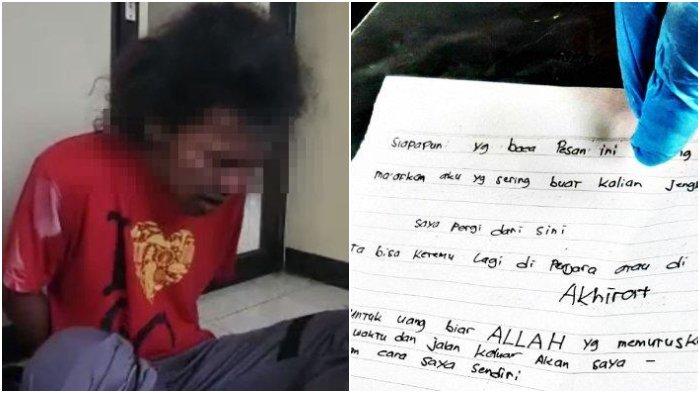 Siapapun yg baca Pesan ini
ma'afkan aku yg sering buat kalian
saya pergi dari sini
bisa ketemu lagi di penjara atau di
Akhirat
untuk uang biar ALLAH yg
waktu dan jalan keluar Akan saya -
cara saya sendiri